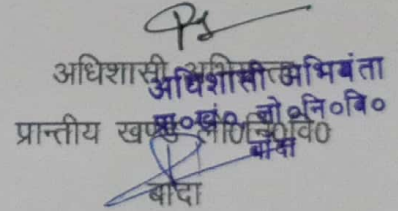 अधिशासी अभियन्ता
अधिशासी अभियंता
प्रा०खं०, लो०नि०वि०
प्रान्तीय खण्ड लो०नि०वि०
बांदा
बांदा